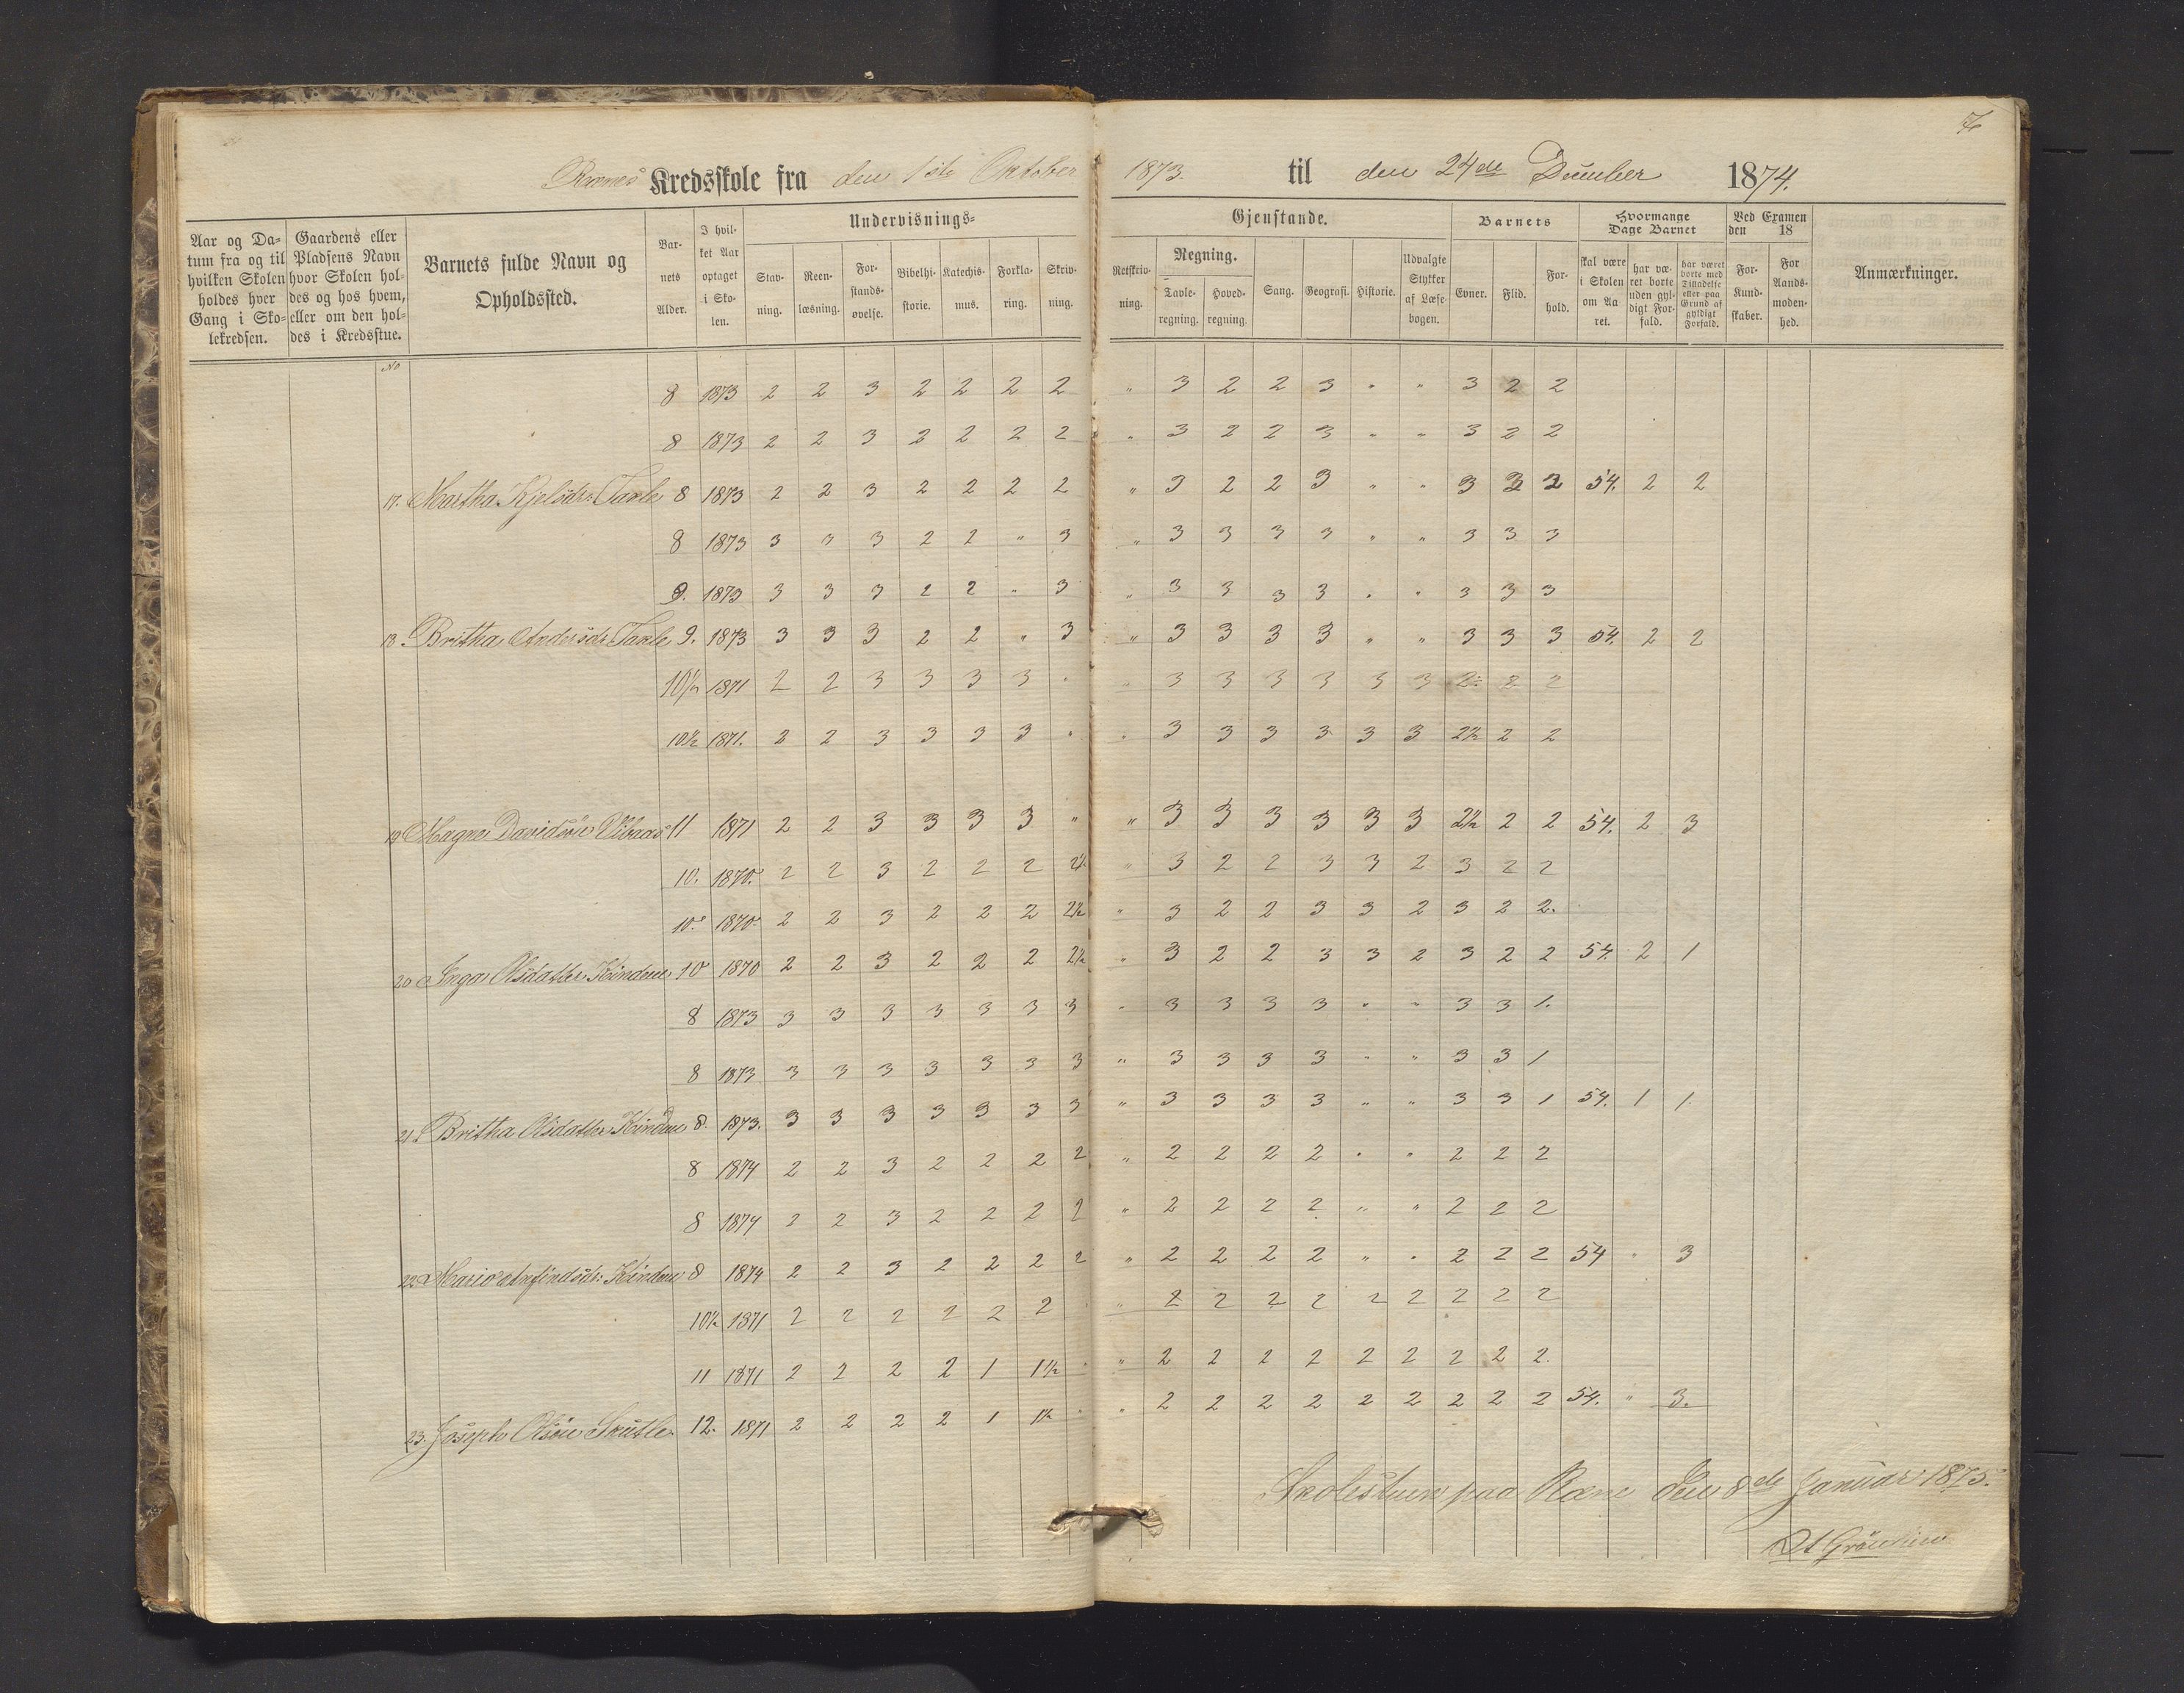 7
Kredsskole fra den 1ste Oktober 1873. til den 24de 1874.
Aar og Da-tum fra og til hvilken Skolen holdes hver Gang i Sko-lekredsen.
Gaardens eller Pladsens Navn hvor Skolen hol-des og hos hvem, eller om den hol-des i Kredsstue.
Barnets fulde Navn og Opholdssted.
Bar-nets Alder.
I hvil-ket Aar optaget i Sko-len.
Undervisnings-
Stav-ning.
Reen-læsning.
For-stands-øvelse.
Bibelhi-storie.
Katechis-mus.
Forkla-ring.
Skriv-ning.
Gjenstande.
Retskriv-ning.
Regning.
Tavle-regning.
Hoved-regning.
Sang.
Geografi.
Historie.
Udvalgte Stykker af Læse bogen.
Barnets
Evner.
Flid.
For-hold.
Hvormange Dage Barnet
skal være i Skolen om Aa ret.
har væ-ret borte uden gyl-digt For-fald.
har været borte med Tilladelse eller paa Grund af gyldigt Forfald.
Ved Examen den 18
For Kund-skaber.
For Aands-moden-hed.
Anmærkninger.
No
8 1873 2 2 3 2 2 2 2 " 3 2 2 3 " " 3 2 2
8 1873 2 2 3 2 2 2 2 " 3 2 2 3 " " 3 2 2
17. Martha Kjelsdtr: 8 1873 2 2 3 2 2 2 2 " 3 2 2 3 " " 3 2 2 54. 2 2
8 1873 3 3 3 2 2 " 3 " 3 3 3 3 " " 3 3 3
9. 1873 3 3 3 2 2 " 3 " 3 3 3 3 " " 3 3 3
18. Britha Andersdtr 9. 1873 3 3 3 2 2 " 3 " 3 3 3 3 " " 3 3 3 54. 2 2
10½ 1871 2 2 3 3 3 3 " " 3 3 3 3 3 3 2½ 2 2
10½ 1871. 2 2 3 3 3 3 " " 3 3 3 3 3 3 2½ 2 2
19 Magne Davidsøn 11 1871 2 2 3 3 3 3 " " 3 3 3 3 3 3 2½ 2 2 54. 2 3
10. 1870. 2 2 3 2 2 2 2½ " 3 2 2 3 3 2 3 2 2
10. 1870. 2 2 3 2 2 2 2½ " 3 2 2 3 3 2 3 2 2.
20 Inga Olsdatter Kindem 10 1870 2 2 3 2 2 2 2½ " 3 2 2 3 3 2 3 2 2 54. 2 1
8 1873 3 3 3 3 3 3 3 " 3 3 3 3 " " 3 3 1.
8 1873 3 3 3 3 3 3 3 " 3 3 3 3 " " 3 3 1
21. Britha Olsdatter Kindem 8. 1873. 3 3 3 3 3 3 3 " 3 3 3 3 " " 3 3 1 54. 1 1.
8 1874 2 2 3 2 2 2 2 " 2 2 2 2 " " 2 2 2
8 1874 2 2 3 2 2 2 2 " 2 2 2 2 " " 2 2 2
22 Mari Arnfindsdtr: Kindem 8 1874 2 2 3 2 2 2 2 " 2 2 2 2 " " 2 2 2 54 " 3
10½ 1871 2 2 2 2 2 2 " " 2 2 2 2 2 2 2 2 2
11 1871 2 2 2 2 1 1½ " " 2 2 2 2 2 2 2 2 2.
23. Joseph Olsøn Skutle 12. 1871 2 2 2 2 1 1½ " " 2 2 2 2 2 2 2 2 2 54. " 3.
Skolestuen paa den 8de Januar 1875.